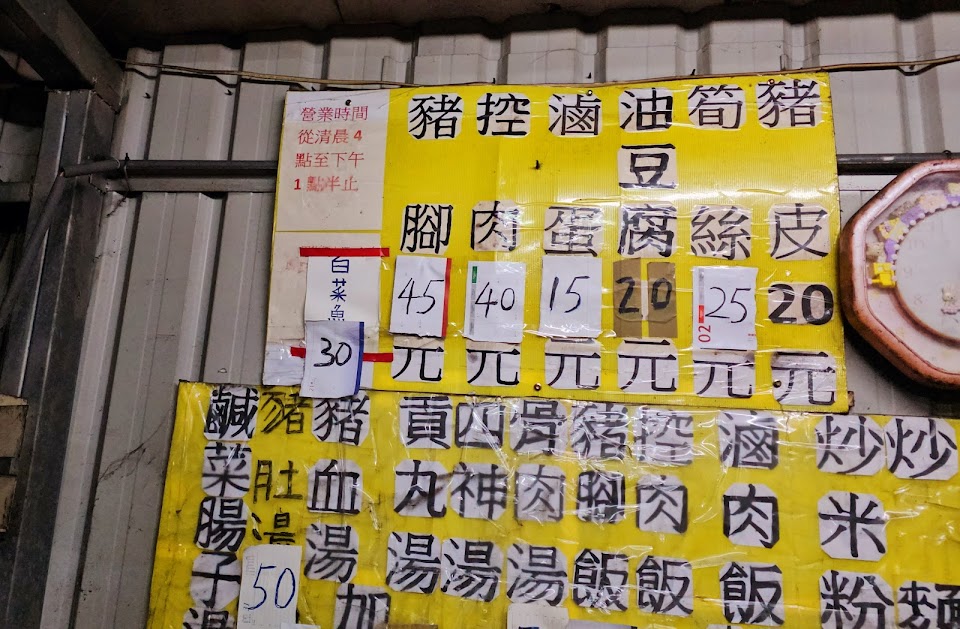 營業時間
從清晨 4
點至下午
1 點半止
豬腳45元
控肉40元
滷蛋15元
油豆腐20元
筍絲25元
豬皮20元
白菜魚
30
炒麵
炒米粉
滷肉飯
控肉飯
豬腳飯
骨肉湯
四神湯
貢丸湯
豬血湯加
豬肚湯
50
鹹菜腸子湯